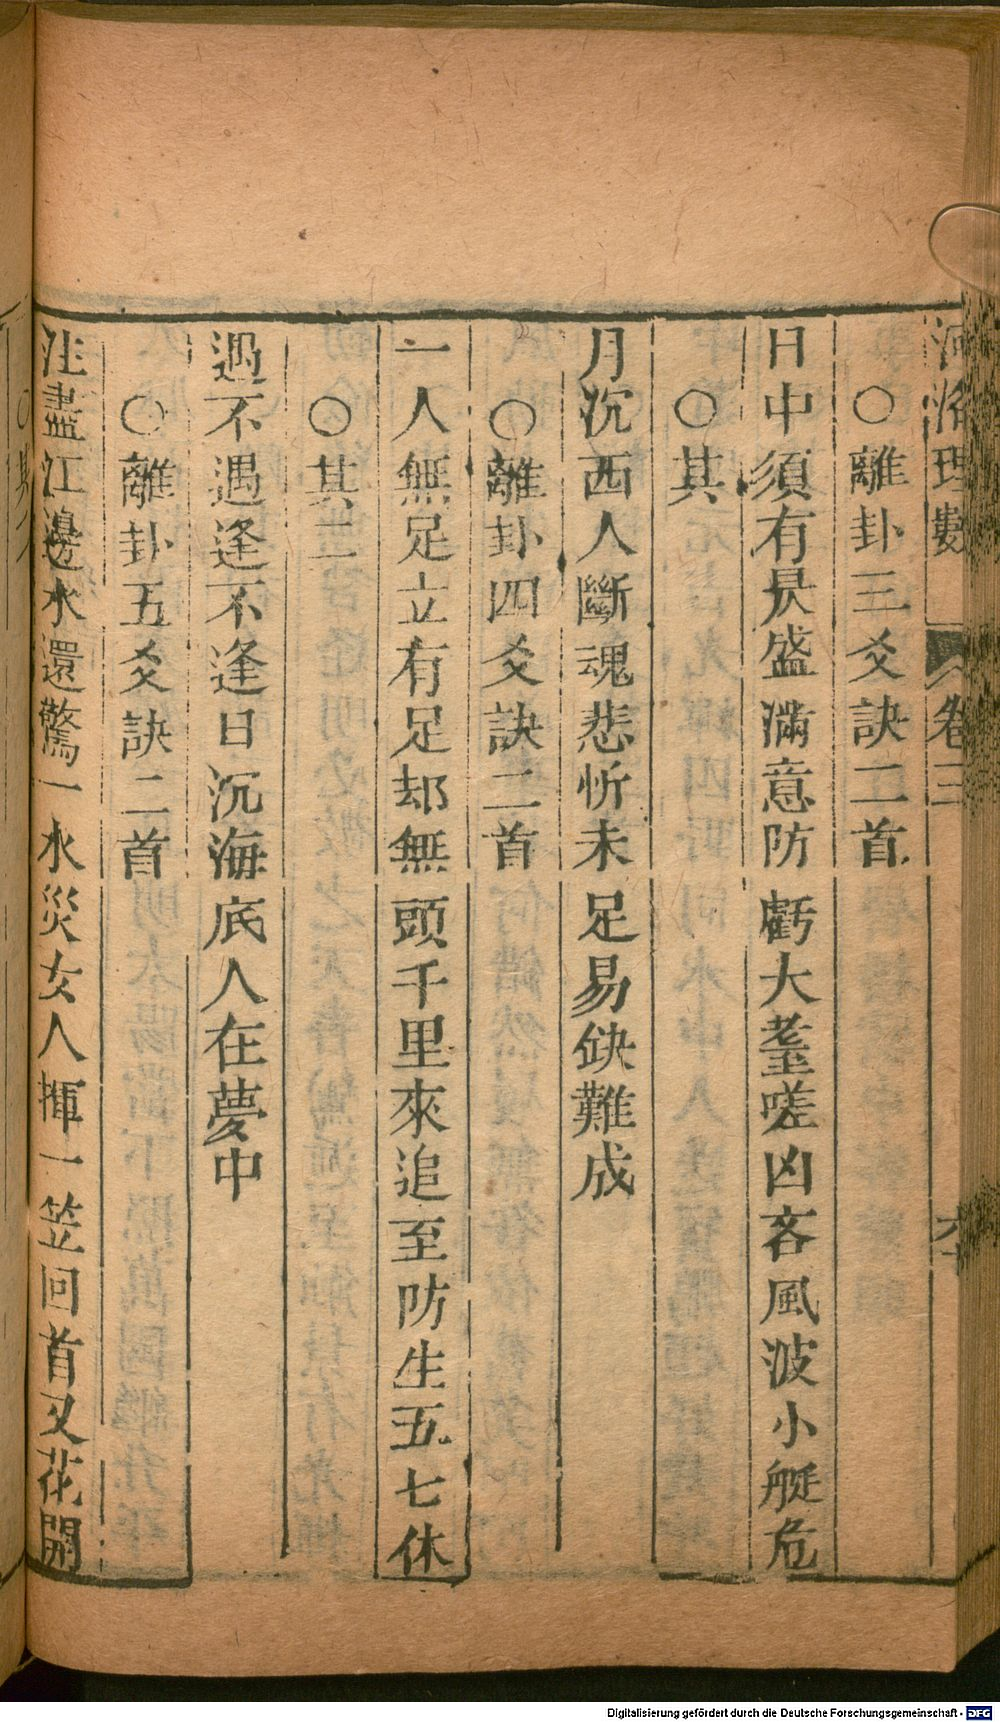 河洛理數 卷三 六
○離卦三爻訣二首
日中須有昃盛滿意防虧大耋嗟凶吝風波小艇危
○其
月沉西人斷魂悲忻未足易缺難成
○離卦四爻訣二首
一人無足立有足却無頭千里來追至防生五七休
○其二
遇不遇逢不逢日沉海底人在夢中
○離卦五爻訣二首
注盡江邊水還驚一水災女人揮一笠回首又花開
○其二
Digitalisierung gefördert durch die Deutsche Forschungsgemeinschaft - DFG